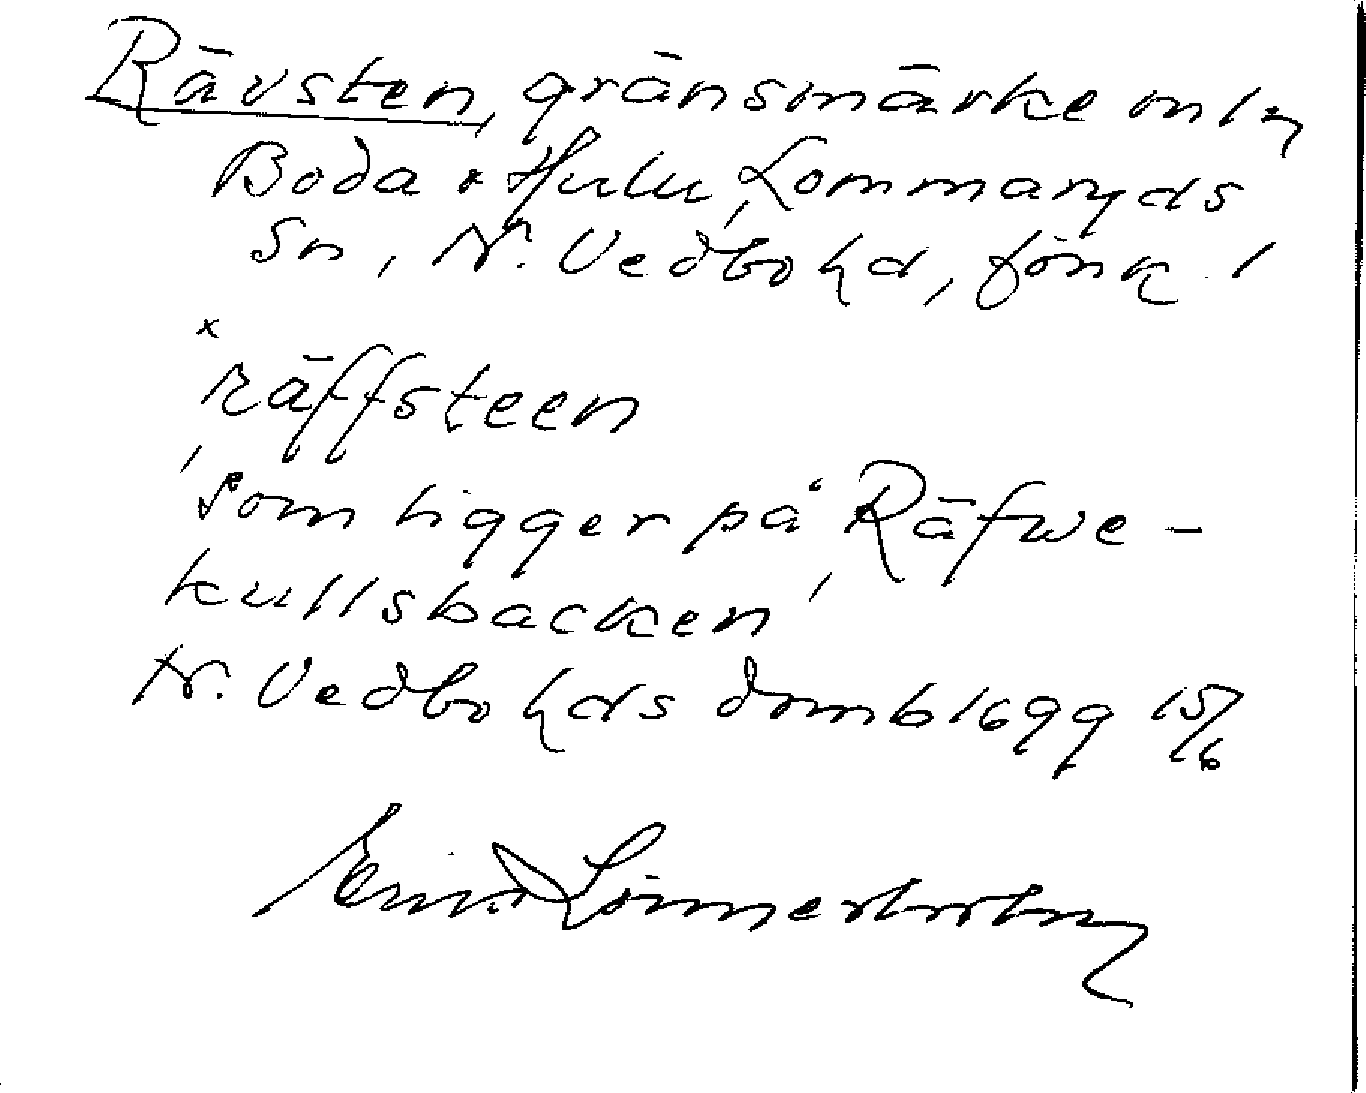 Rävsten, gränsmärke mln
Boda o Hulu, Lommaryds
Sn, N. Vedbo hd, Jönk. l
x
räffsteen
'som ligger på Räfwe-
kullsbacken'
N. Vedbo hds domb 1699 15/6